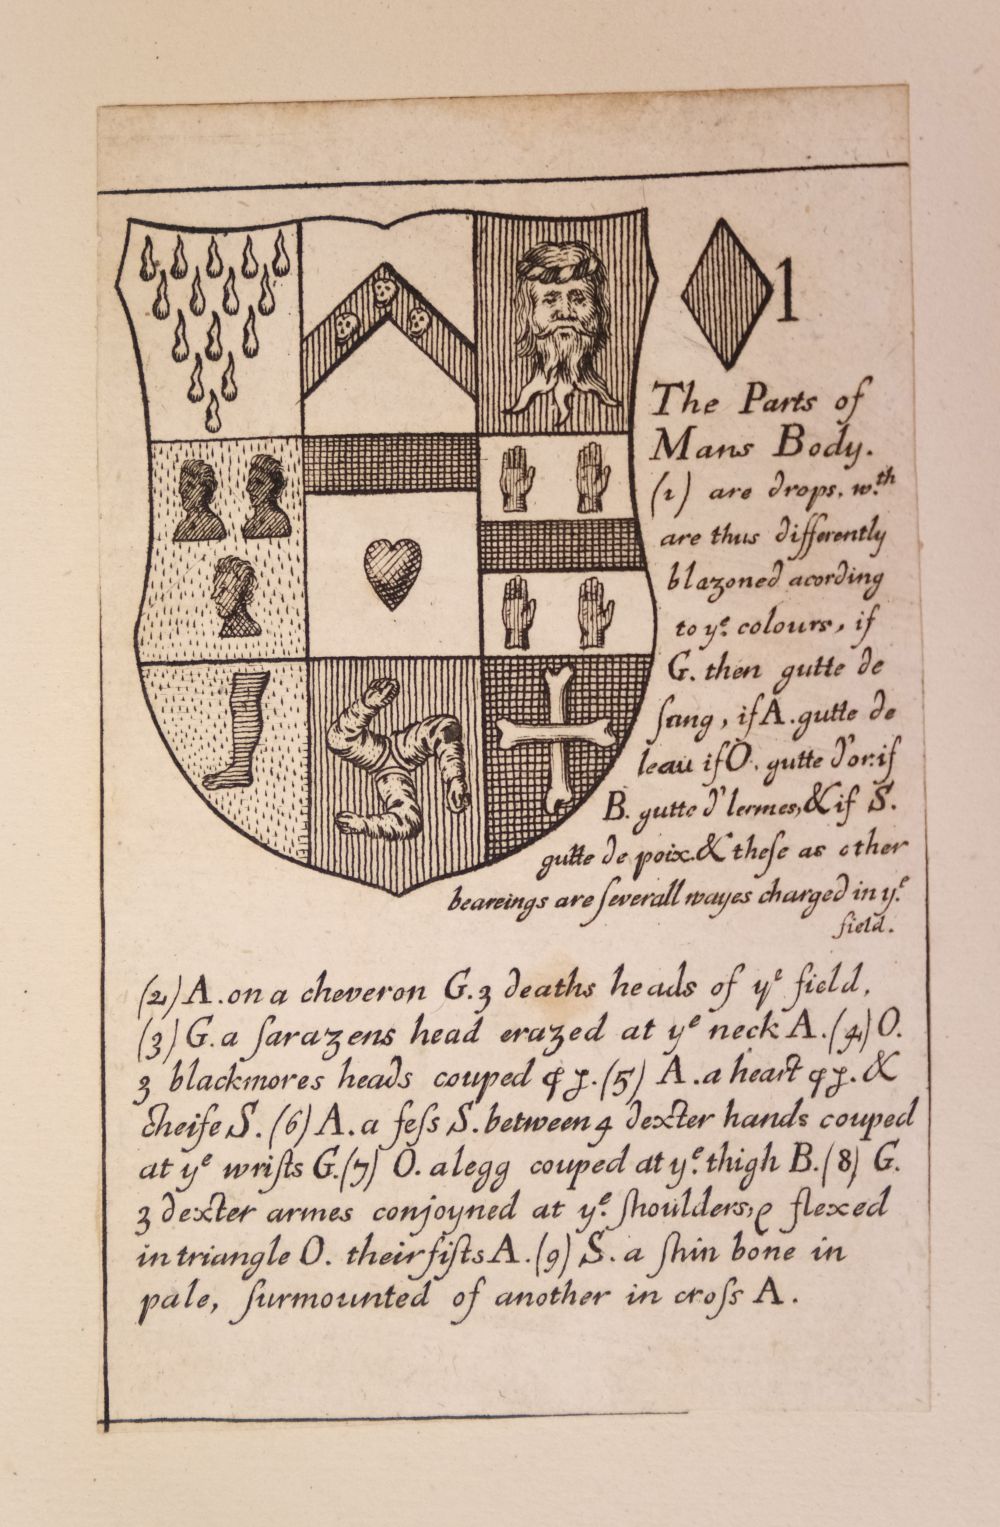 1
The Parts of
Mans Body.
(1) are drops, w.th
are thus differently
blazoned acording
to yᵉ. colours, if
G. then gutte de
ſang, if A. gutte de
leau if O. gutte d'or. if
B. gutte d'lermes, & if S.
gutte de poix. & theſe as other
beareings are ſeverall wayes charged in yᵉ.
field.
(2) A. on a cheveron G. 3 deaths heads of yᵉ field.
(3) G. a ſarazens head erazed at yᵉ neck A. (4) O.
3 blackmores heads couped (5) A. a heart &
cheife S. (6) A. a feſs S. between 4 dexter hands couped
at yᵉ wriſts G. (7) O. a legg couped at yᵉ. thigh B. (8) G.
3 dexter armes conjoyned at yᵉ. ſhoulders, flexed
in triangle O. their fiſts A. (9) S. a ſhin bone in
pale, ſurmounted of another in croſs A.